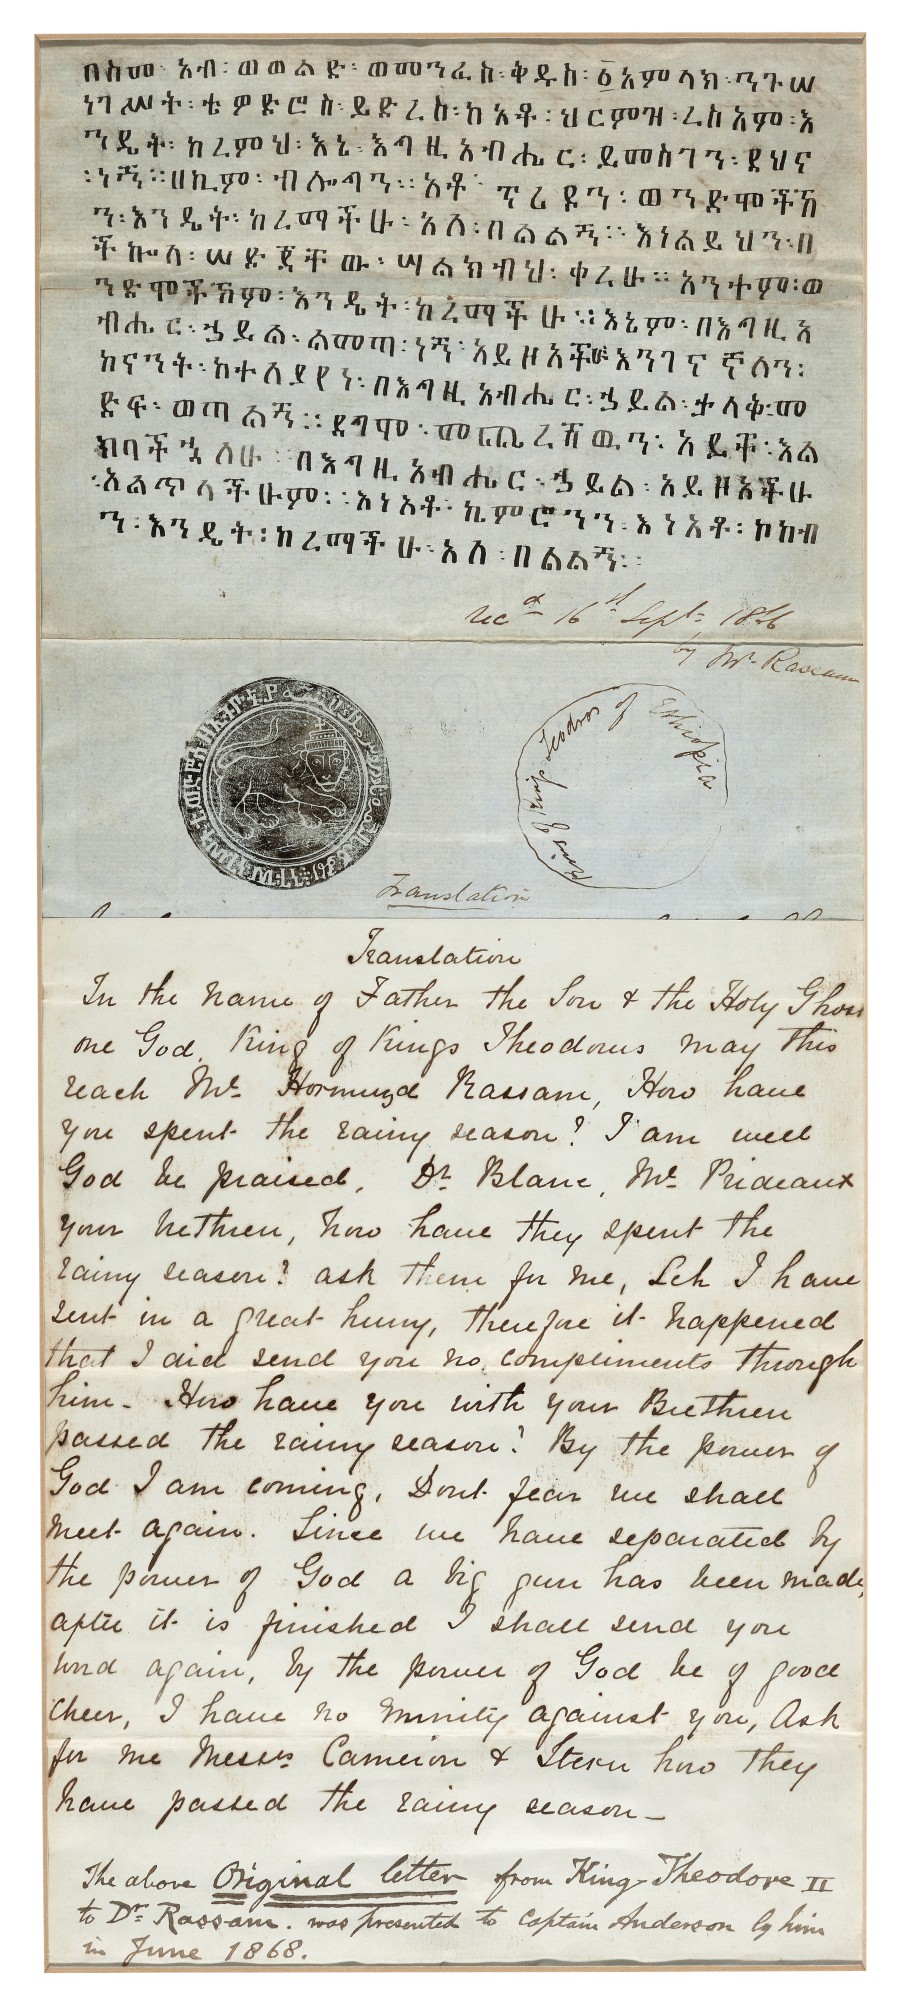 በስመ ፡ አብ ፡ ወወልድ ፡ ወመንፈስ ፡ ቅዱስ ፡ ፩አምላክ ፡ ንጉሠ
ነገሥት ፡ ቴዎድሮስ ፡ ይድረስ ፡ ከአቶ ፡ ህርምዝ ፡ ረስአም ፡ እ
ንዴት ፡ ከረምህ ፡ እኔ ፡ እግዚአብሔር ፡ ይመስገን ፡ ደህና
፡ ነኝ ። ሀኪም ፡ ብሎላን ። አቶ ፡ ፕሪዩን ፡ ወንድሞችኸ
ን ፡ እንዴት ፡ ከረማችሁ ፡ አለ ፡ በልልኝ ። እነልይህን ፡ በ
ችኰላ ፡ ሠድጃቸው ፡ ሣልክብህ ፡ ቀረሁ ። አንተም ፡ ወ
ንድሞችኸም ፡ እንዴት ፡ ከረማችሁ ። እኔም ፡ በእግዚአ
ብሔር ፡ ኃይል ፡ ልመጣ ፡ ነኝ ፡ አይዞአችሁ እንገናኛለን ፡
ከናንት ፡ ከተለያየን ፡ በእግዚአብሔር ፡ ኃይል ፡ ታላቅ ፡ መ
ድፍ ፡ ወጣልኝ ። ደግሞ ፡ መጨረሻዉን ፡ አይቼ ፡ እል
ክባችኋለሁ ። በእግዚአብሔር ፡ ኃይል ፡ አይዞአችሁ
፡ አልጥላችሁም ። እነአቶ ፡ ኪምሮንን ፡ እነአቶ ፡ ኮከብ
ን ፡ እንዴት ፡ ከረማችሁ ፡ አለ ፡ በልልኝ ።
recd 16st Sept. 1866
by Mr. Rassam
King Teodros of Ethiopia
Translation
Translation
In the name of Father the Son & the Holy Ghost
one God. King of Kings Theodorus may this
reach Mr. Hormuzd Rassam, How have
you spent the rainy season? I am well
God be praised. Dr. Blanc, Mr. Prideaux
your brethren, how have they spent the
rainy season? ask them for me, Leh I have
sent in a great hurry, therefore it happened
that I did send you no compliments through
him. How have you with your Brethren
passed the rainy season? By the power of
God I am coming. Dont fear we shall
meet again. Since we have separated by
the power of God a big gun has been made,
after it is finished I shall send you
word again, by the power of God be of good
cheer, I have no enmity against you, Ask
for me Messrs Cameron & Stern how they
have passed the rainy season—
The above Original letter from King Theodore II
to Dr. Rassam. was presented to Captain Anderson by him
in June 1868.